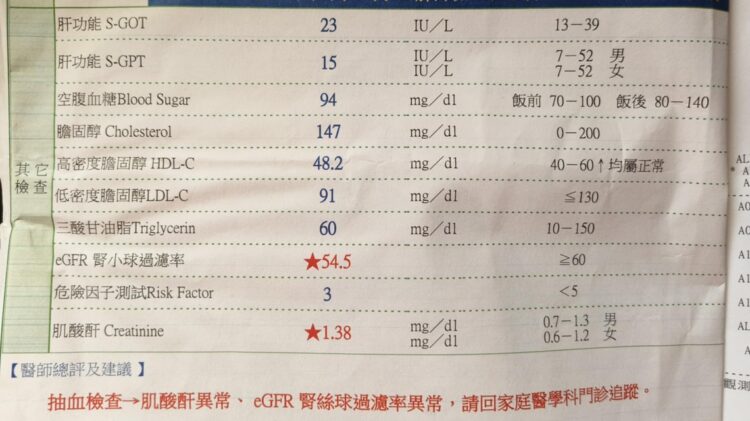 肝功能 S-GOT 23 IU/L 13-39
肝功能 S-GPT 15 IU/L 7-52 男
IU/L 7-52 女
空腹血糖Blood Sugar 94 mg/dl 飯前 70-100 飯後 80-140
膽固醇 Cholesterol 147 mg/dl 0-200
其它檢查
高密度膽固醇 HDL-C 48.2 mg/dl 40-60↑均屬正常
低密度膽固醇LDL-C 91 mg/dl ≦130
三酸甘油脂Triglycerin 60 mg/dl 10-150
eGFR 腎小球過濾率 ★54.5 ≧60
危險因子測試Risk Factor 3 <5
肌酸酐 Creatinine ★1.38 mg/dl 0.7-1.3 男
mg/dl 0.6-1.2 女
【醫師總評及建議】
抽血檢查→肌酸酐異常、eGFR 腎絲球過濾率異常,請回家庭醫學科門診追蹤。
AL
* A
AO
AO
A1
A1
A1
AL
A
觀測